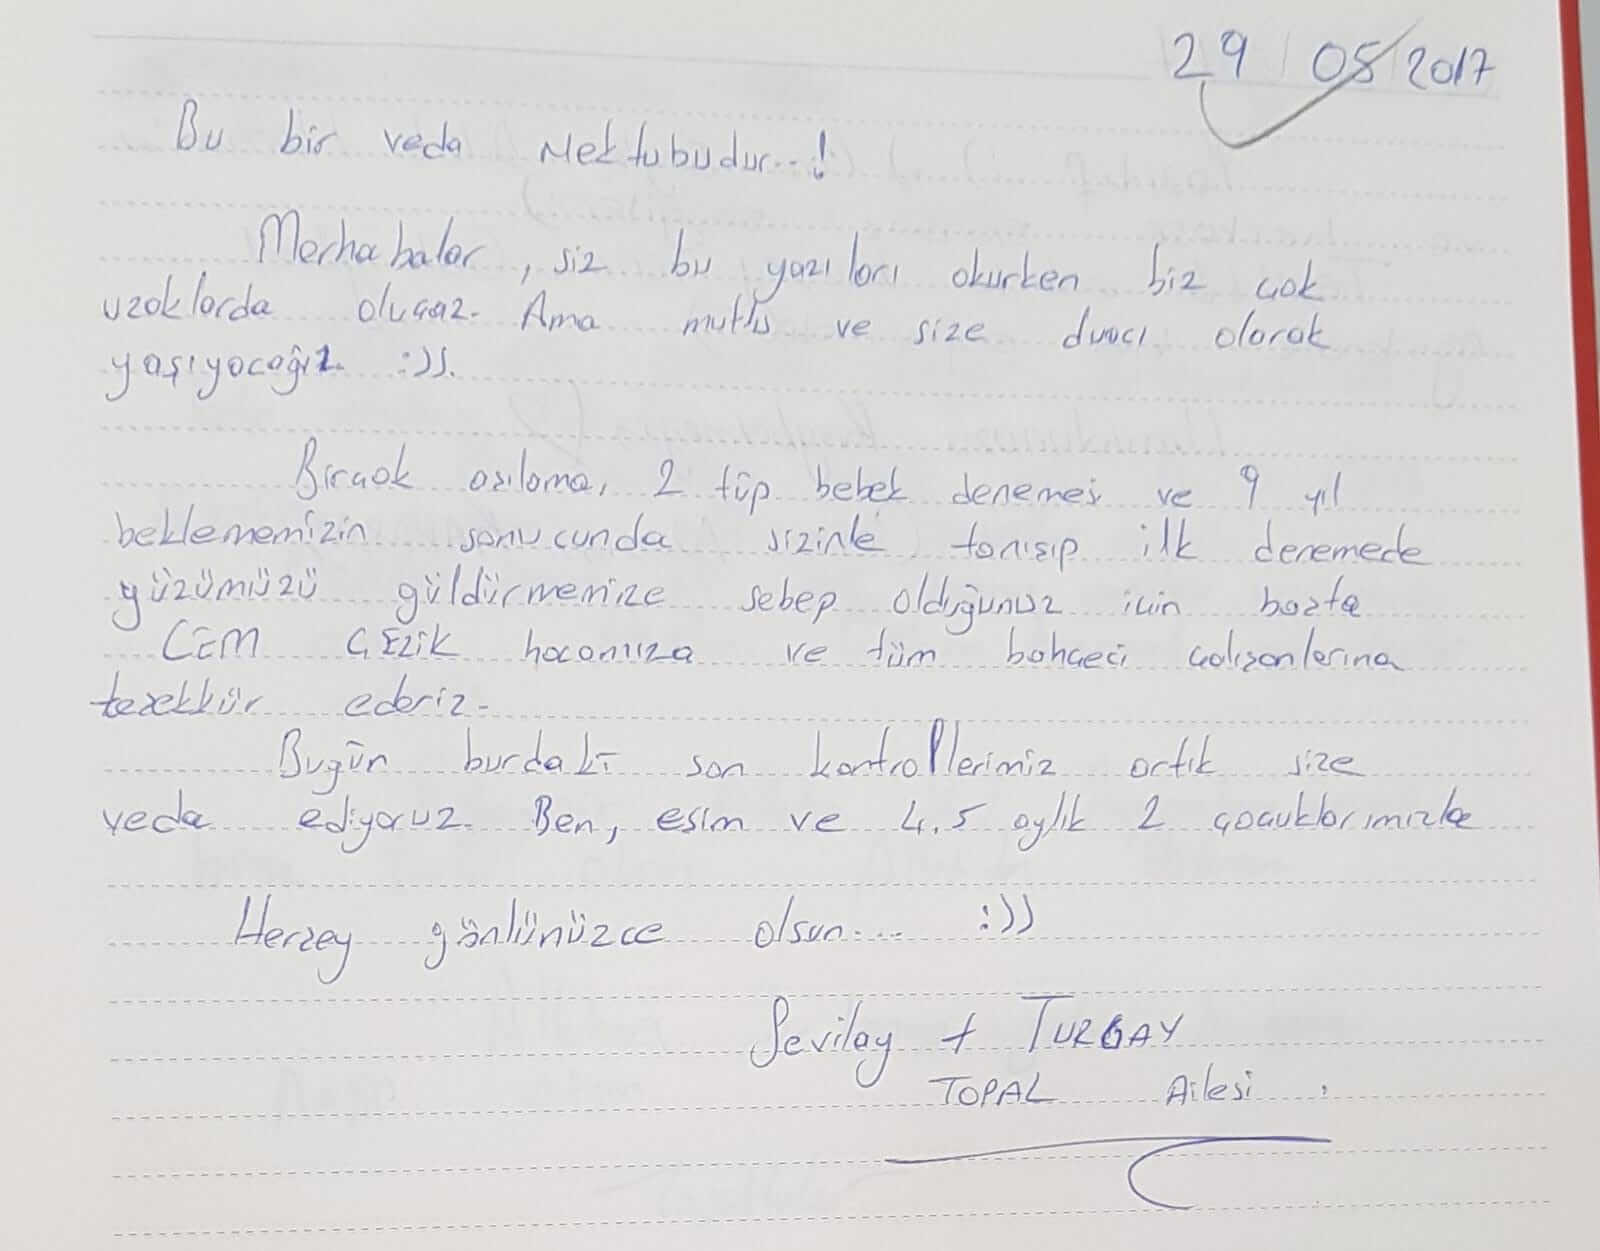 29 / 05 / 2017
Bu bir veda Mektubudur...!
Merhabalar, siz bu yazıları okurken biz çok
uzaklarda olucaz. Ama mutlu ve size duacı olarak
yaşıyacağız. :)).
Birçok aşılama, 2 tüp bebek denemesi ve 9 yıl
beklememizin sonucunda sizinle tanışıp ilk denemede
yüzümüzü güldürmenize sebep olduğunuz için başta
CEM ÇEZİK hocamıza ve tüm bahçeci çalışanlarına
teşekkür ederiz.
Bugün burdaki son kontrollerimiz artık size
veda ediyoruz. Ben, eşim ve 4,5 aylık 2 çocuklarımızla
Herşey gönlünüzce olsun.... :))
Sevilay + TURGAY
TOPAL Ailesi.